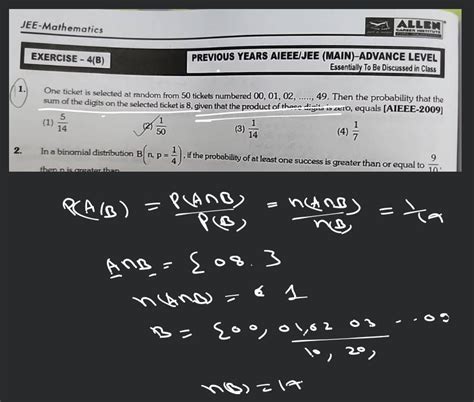 JEE-Mathematics
ALLEN
CAREER INSTITUTE
EXERCISE - 4(B)
PREVIOUS YEARS AIEEE/JEE (MAIN)-ADVANCE LEVEL
Essentially To Be Discussed in Class
1. One ticket is selected at random from 50 tickets numbered 00, 01, 02, ....., 49. Then the probability that the
sum of the digits on the selected ticket is 8, given that the product of these digits is zero, equals [AIEEE-2009]
(1) 5/14 (2) 1/50 (3) 1/14 (4) 1/7
2. In a binomial distribution B(n, p = 1/4), if the probability of at least one success is greater than or equal to 9/10,
then n is greater than
P(A/B) = P(A∩B)/P(B) = n(A∩B)/n(B) = 1/14
A∩B = { 08. }
n(A∩B) = 1
B = { 00, 01, 02 03 ... 09
10, 20,
n(B) = 14